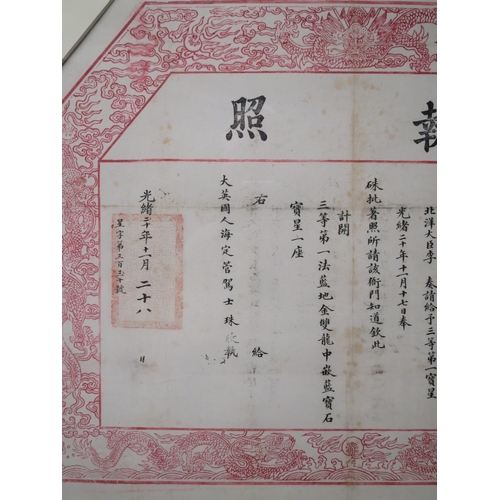 執照
北洋大臣李　奏請給予三等第一寶星
光緒二十年十一月十七日奉
硃批著照所請該衙門知道欽此
計開
三等第一法藍地金雙龍中嵌藍寶石
寶星一座
右　給
大英國人海定管駕士珠　執
光緒二十年十一月二十八日
星字第三百五十號